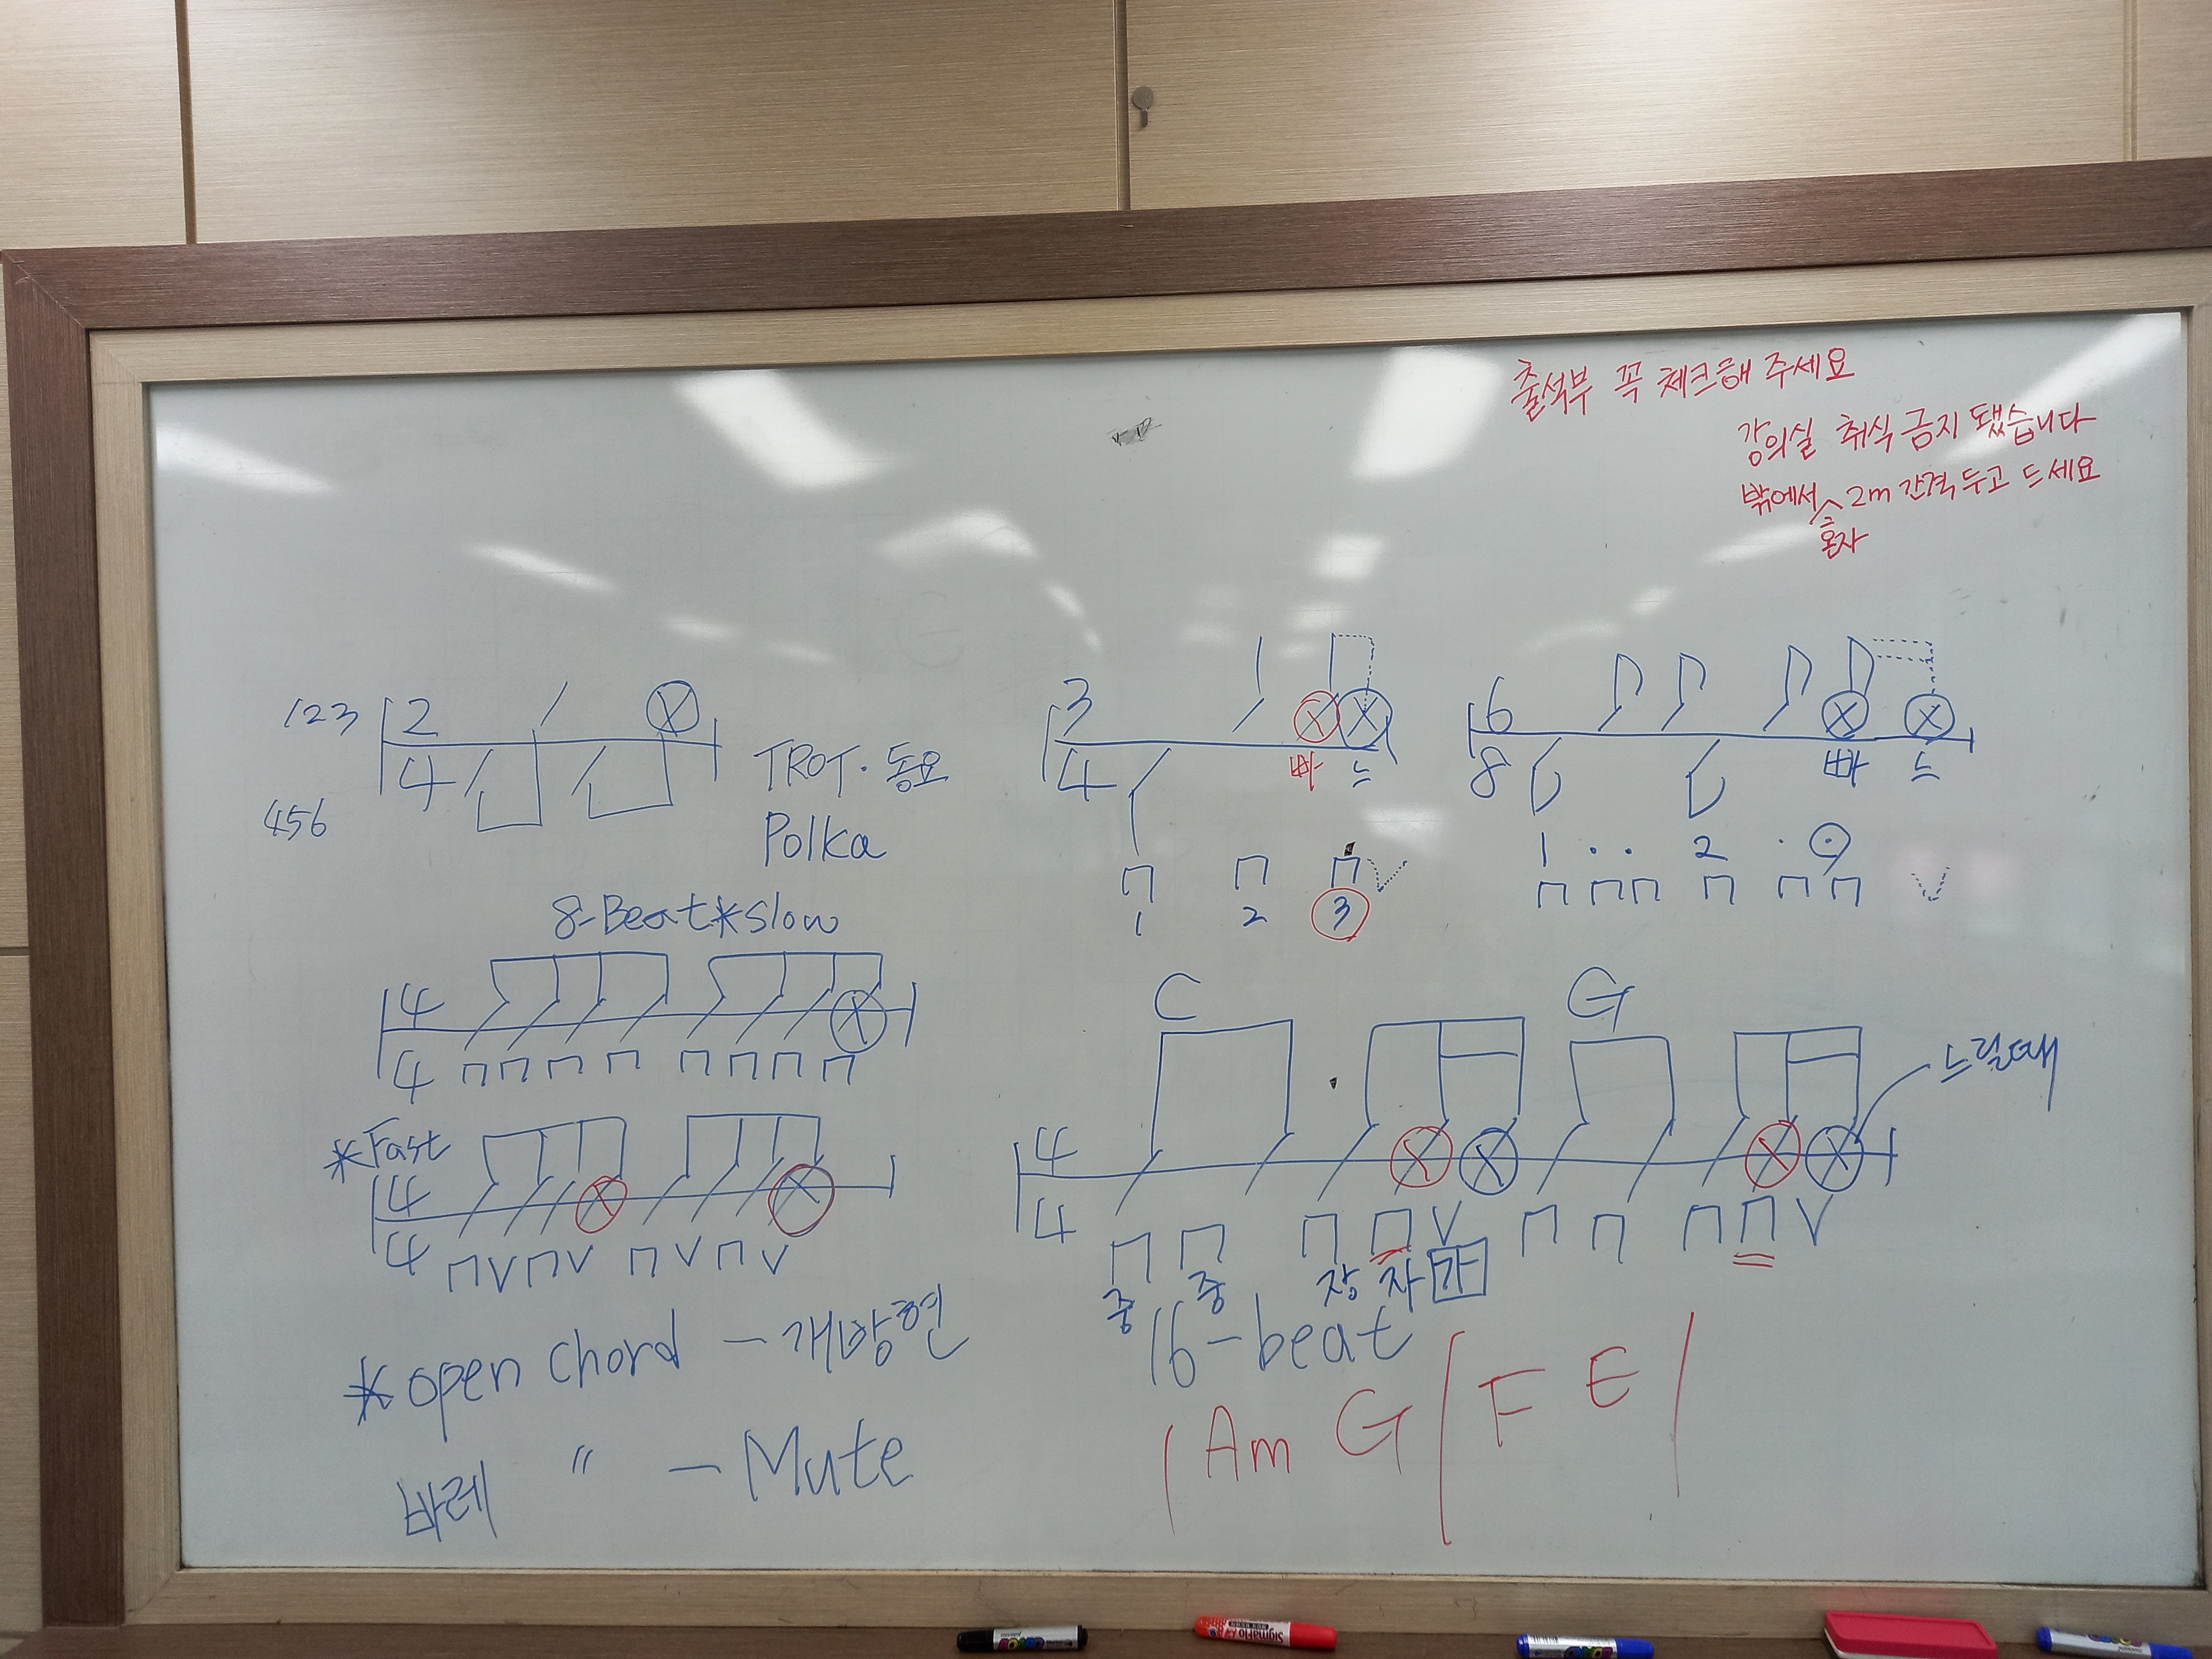 출석부 꼭 체크해 주세요
강의실 취식 금지 됐습니다
밖에서 2m 간격 두고 드세요
혼자
123 2
4
456
TROT. 동요
Polka
3
4
빠 느
1 2 3
6
8
빠 느
1 . . 2 . .
8-Beat*Slow
4
4
*Fast
4
4
C G
4
4
느릴때
V V
중 중 장 자 가
16-beat
V V V V
*open chord - 개방현
바레 〃 - Mute
Am G / F E